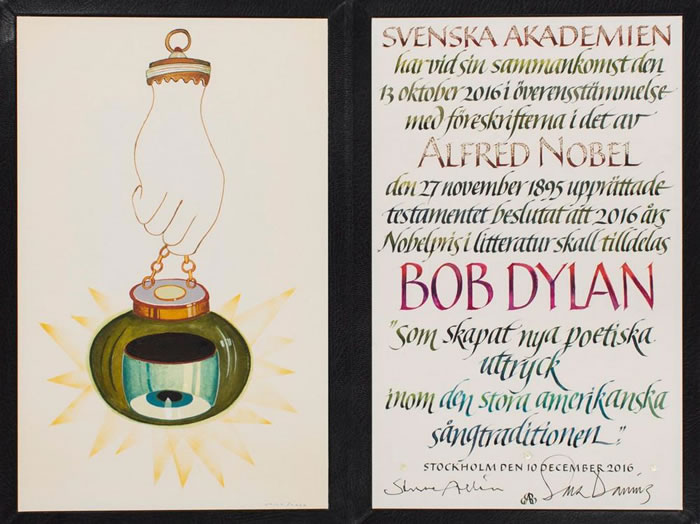 SVENSKA AKADEMIEN
har vid sin sammankomst den
13 oktober 2016 i överensstämmelse
med föreskrifterna i det av
ALFRED NOBEL
den 27 november 1895 upprättade
testamentet beslutat att 2016 års
Nobelpris i litteratur skall tilldelas
BOB DYLAN
"som skapat nya poetiska
uttryck
inom den stora amerikanska
sångtraditionen".
STOCKHOLM DEN 10 DECEMBER 2016